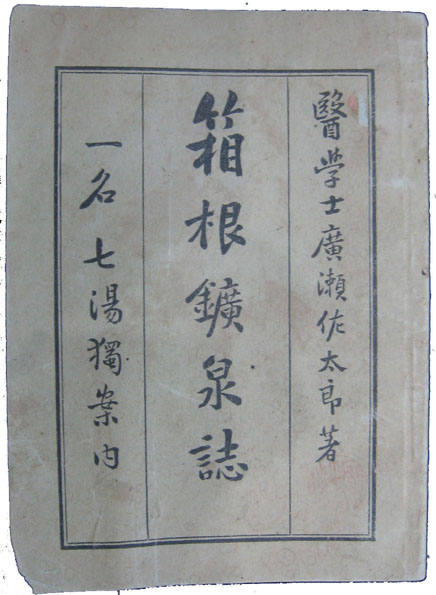 醫学士廣瀬佐太郎著
箱根鑛泉誌
一名七湯獨案内